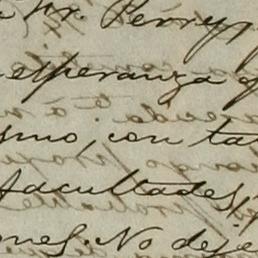 Sr. Perry,
esperanza q
smo, con ta
facultades,
ones. No deje